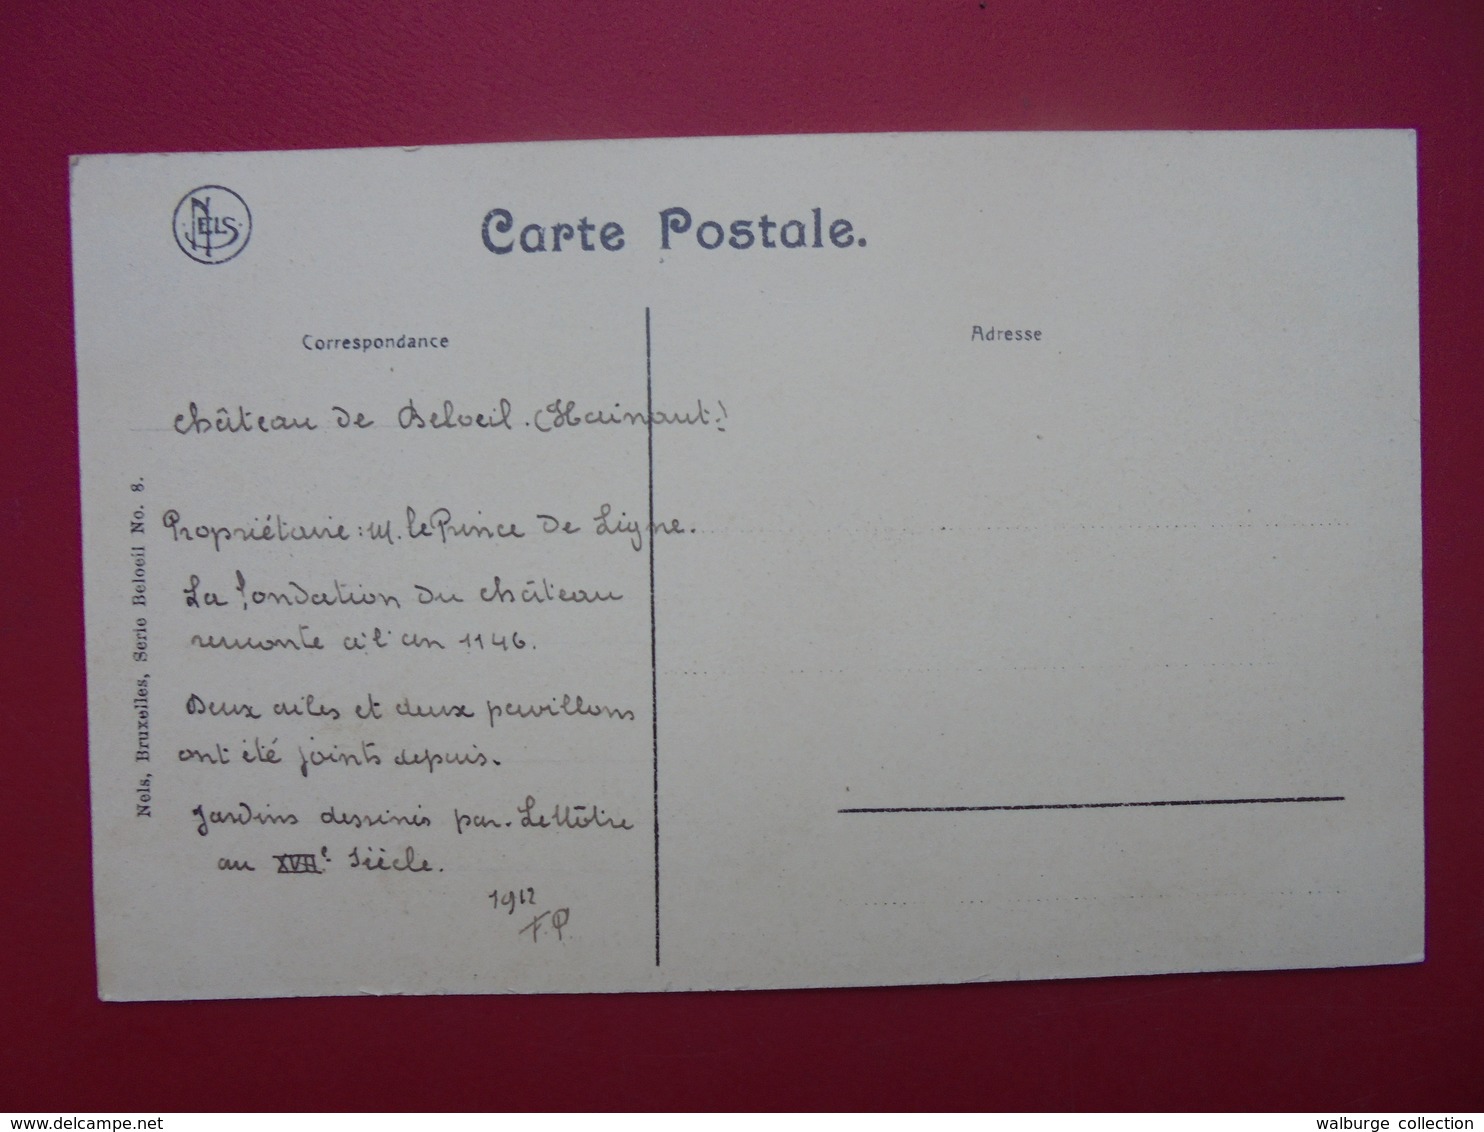 NELS
Carte Postale.
Correspondance
Adresse
Château de Beloeil. (Hainaut.)
Propriétaire : M. le Prince de Ligne.
La fondation du château
remonte à l'an 1146.
Deux ailes et deux pavillons
ont été joints depuis.
Jardins dessinés par Le Nôtre
au XVIIe Siècle.
1912
F.P.
Nels, Bruxelles, Serie Beloeil No. 8.
www.delcampe.net
walburge collection